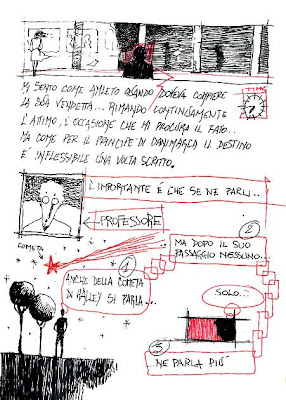 MI SENTO COME AMLETO QUANDO DOVEVA COMPIERE
LA SUA VENDETTA... RIMANDO CONTINUAMENTE
L'ATIMO, L'OCCASIONE CHE MI PROCURA IL FATO..
MA COME PER IL PRINCIPE DI DANIMARCA IL DESTINO
E' INFLESSIBILE UNA VOLTA SCRITTO.
TIME
L'IMPORTANTE È CHE SE NE PARLI..
PROFESSORE
COMETA
1
ANCHE DELLA COMETA
DI HALLEY SI PARLA...
2
MA DOPO IL SUO
PASSAGGIO NESSUNO...
SOLO...
3
...NE PARLA PIÙ